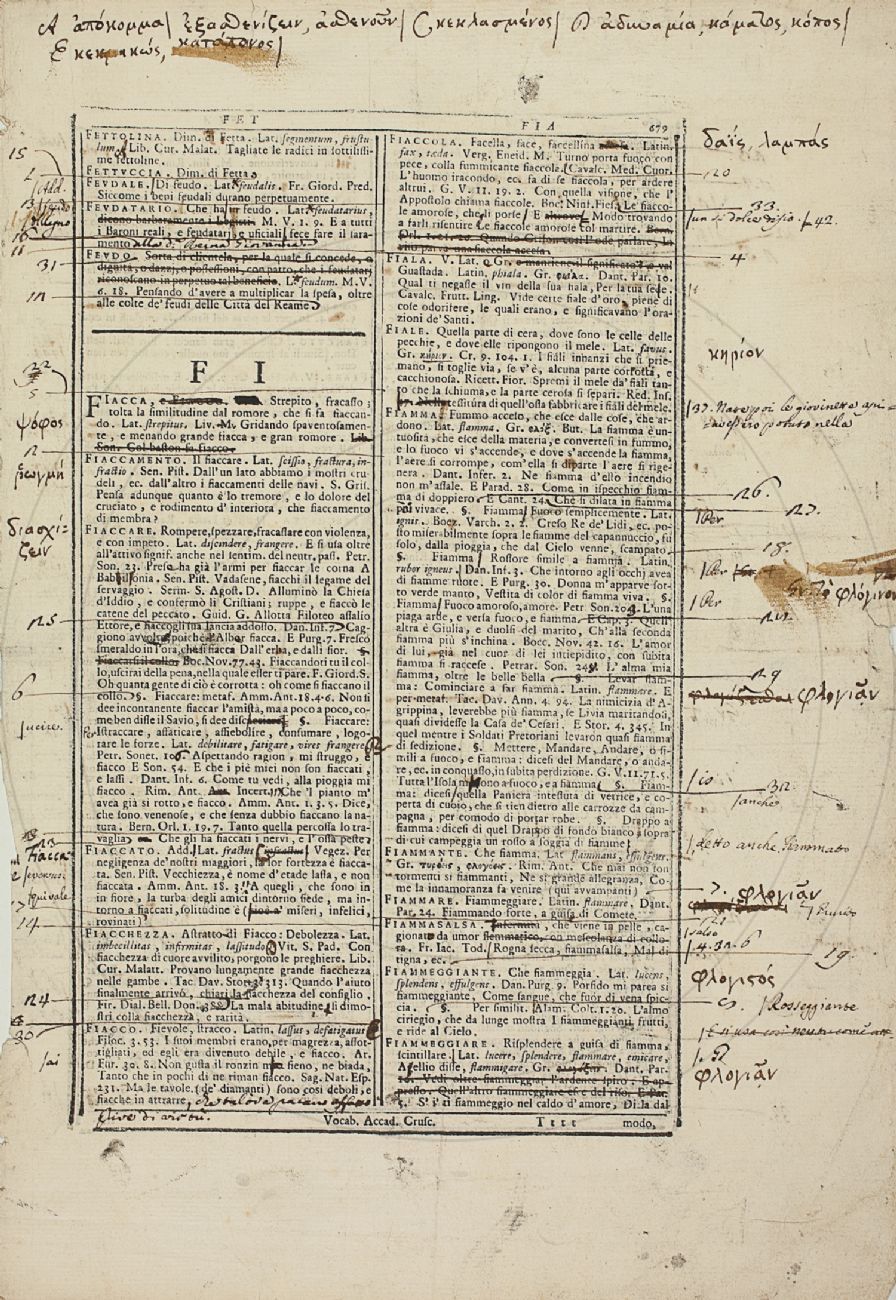 A ἀπόκομμα/ ἐξασθενίζειν, ἀσθενοῦν/ C κεκλασμένος/ D ἀδυναμία, κάματος, κόπος/
E κεκμηκώς, κατάπονος/
FET
FETTOLINA. Dim. di Fetta. Lat. segmentum, frustu-
lum. Lib. Cur. Malat. Tagliate le radici in sottilissi-
me fettoline.
FETTUCCIA. Dim. di Fetta.
FEUDALE. Di feudo. Lat. feudalis. Fr. Giord. Pred.
Siccome i beni feudali durano perpetuamente.
FEUDATARIO. Che ha feudo. Lat. feudatarius,
dicono barbaramente i Legisti. M. V. 1. 9. E a tutti
i Baroni reali, e feudatarj, e uficiali fece fare il sara-
mento
FEUDO. Sorta di clientela, per la quale si concede, o
dignità, o dazzj, o possessioni, con patto, che i feudatarj
riconoscano in perpetuo tal beneficio. L. feudum. M.V.
6. 18. Pensando d'avere a multiplicar la spesa, oltre
alle colte de' feudi delle Città del Reame
FI
FIACCA, Strepito, fracasso;
tolta la similitudine dal romore, che si fa fiaccan-
do. Lat. strepitus. Liv. M. Gridando spaventosamen-
te, e menando grande fiacca, e gran romore. Lib.
Son. Col baston fa fiacco.
FIACCAMENTO. Il fiaccare. Lat. scissio, fractura, in-
fractio. Sen. Pist. Dall'un lato abbiamo i mostri cru-
deli, ec. dall'altro i fiaccamenti delle navi. S. Gris.
Pensa adunque quanto è'l tremore, e lo dolore del
cruciato, e rodimento d'interiora, che fiaccamento
di membra?
FIACCARE. Rompere, spezzare, fracassare con violenza,
e con impeto. Lat. disfendere, frangere. E si usa oltre
all'attivo signif. anche nel sentim. del neutr. pass. Petr.
Son. 23. Presa ha già l'armi per fiaccar le corna A
Babilonia. Sen. Pist. Vadasene, fiacchi il legame del
servaggio. Serm. S. Agost. D. Alluminò la Chiesa
d'Iddio, e confermò li Cristiani; ruppe, e fiaccò le
catene del peccato. Guid. G. Allotta Filoteo assalio
Ettore, e fiaccogli una lancia addosso. Dan. Inf. 7. Cag-
giono avvolte, poichè l'Albor fiacca. E Purg. 7. Fresco
smeraldo in l'ora, che si fiacca Dall'erba, e dalli fior. §.
Fiaccarsi il collo. Boc. Nov. 77. 43. Fiaccandoti tu il col-
lo, uscirai della pena, nella quale esser ti pare. F. Giord. S.
Oh quanta gente di ciò è corrotta: oh come si fiaccano il
collo. §. Fiaccare: metaf. Amm. Ant. 18. 4. 6. Non si
dee incontanente fiaccar l'amistà, ma a poco a poco, co-
me ben disse il Savio, si dee discucire. §. Fiaccare:
Istraccare, assaticare, affiebolire, consumare, logo-
rare le forze. Lat. debilitare, fatigare, vires frangere.
Petr. Sonet. 106. Aspettando ragion, mi struggo, e
fiacco E Son. 54. E che i piè miei non son fiaccati,
e lassi. Dant. Inf. 6. Come tu vedi, alla pioggia mi
fiacco. Rim. Ant. Incert. Che 'l pianto m'
avea già si rotto, e fiacco. Amm. Ant. 1. 3. 5. Dice,
che sono venenose, e che senza dubbio fiaccano la na-
tura. Bern. Orl. 1. 19. 7. Tanto quella percossa lo tra-
vaglia, Che gli ha fiaccati i nervi, e l'ossa peste.
FIACCATO. Add. Lat. fractus, infractus. Vegez. Per
negligenza de'nostri maggiori, la lor fortezza è fiacca-
ta. Sen. Pist. Vecchiezza, è nome d'etade lassa, e non
fiaccata. Amm. Ant. 18. 3. A quegli, che sono in
in fiore, la turba degli amici dintorno siede, ma in-
torno a fiaccati, solitudine è (cioè a' miseri, infelici,
rovinati)
FIACCHEZZA. Astratto di Fiacco: Debolezza. Lat.
imbecillitas, infirmitas, lassitudo. Vit. S. Pad. Con
fiacchezza di cuore avvilito, porgono le preghiere. Lib.
Cur. Malatt. Provano lungamente grande fiacchezza
nelle gambe. Tac. Dav. Stor. 3. 313. Quando l'aiuto
finalmente arrivò, chiarì la fiacchezza del consiglio.
Fir. Dial. Bell. Don. La mala abitudine, si dimo-
stri colla fiacchezza, e rarità.
FIACCO. Fievole, stracco. Latin. lassus, defatigatus.
Filoc. 3. 53. I suoi membri erano, per magrezza, assot-
tigliati, ed egli era divenuto debile, e fiacco. Ar.
Fur. 30. 8. Non gusta il ronzin mai fieno, ne biada,
Tanto che in pochi dì ne riman fiacco. Sag. Nat. Esp.
231. Ma le tavole (de' diamanti) sono così deboli, e
fiacche in attrarre,
FIA 679
FIACCOLA. Facella, face, farcellina. Latin.
fax, tæda. Verg. Eneid. M. Turno porta fuoco con
pece, colla fummicante fiaccola. Cavalc. Med. Cuor.
L'huomo iracondo, ec. fa di se fiaccola, per ardere
altrui. G. V. 11. 19. 2. Con quella visione, che l'
Appostolo chiama fiaccole. Boc. Ninf. Fies. Le fiacco-
le amorose, che li porse, E Modo trovando
a farli risentire Le fiaccole amorose col martire. Bern.
Orl. 1. 21. 20. Quando Grifon così l'ode parlare, In
viso parve una fiaccola accesa.
FIALA. V. Lat. o Gr. e mantiene il significato, e val
Guastada. Latin. phiala. Gr. φιάλη. Dant. Par. 10.
Qual ti negasse il vin della sua fiala, Per la tua sede.
Cavalc. Frutt. Ling. Vide certe fiale d'oro, piene di
cose odorifere, le quali erano, e significavano l'ora-
zioni de'Santi.
FIALE. Quella parte di cera, dove sono le celle delle
pecchie, e dove elle ripongono il mele. Lat. favus.
Gr. κηρίον. Cr. 9. 104. 1. I fiali innanzi che si prie-
mano, si toglie via, se v'è, alcuna parte corrotta, e
cacchionosa. Ricett. Fior. Spremi il mele da'fiali tan-
to che la schiuma, e la parte cerosa si separi. Red. Ins.
testura di quell'ossa fabbricare i fiali del mele.
FIAMMA. Fummo acceso, che esce dalle cose, che ar-
dono. Lat. flamma. Gr. φλόξ. But. La fiamma è un-
tuosità, che esce della materia, e convertesi in fummo,
e lo fuoco vi s'accende, e dove s'accende la fiamma,
l'aere si corrompe, com'ella si diparte l'aere si rige-
nera. Dant. Infer. 2. Ne fiamma d'esto incendio
non m'assale. E Parad. 28. Come in ispecchio fiam-
ma di doppiero. E Cant. 24. Che si dilata in fiamma
poi vivace. §. Fiamma, Fuoco semplicemente. Lat.
ignis. Boez. Varch. 2. 2. Creso Re de' Lidj, ec. po-
sto miserabilmente sopra le fiamme del capannuccio, fu
solo, dalla pioggia, che dal Cielo venne, scampato.
§. Fiamma, Rossore simile a fiamma. Latin.
rubor igneus. Dan. Inf. 3. Che intorno agli occhj avea
di fiamme ruote. E Purg. 30. Donna m'apparve sot-
to verde manto, Vestita di color di fiamma viva. §.
Fiamma, Fuoco amoroso, amore. Petr. Son. 203. L'una
piaga arde, e versa fuoco, e fiamma. E Cap. 3. Quell'
altra è Giulia, e duolsi del marito, Ch'alla seconda
fiamma più s'inchina. Bocc. Nov. 42. 16. L'amor
di lui, già nel cuor di lei intiepidito, con subita
fiamma si raccese. Petrar. Son. 245. L'alma mia
fiamma, oltre le belle bella. §. Levar fiam-
ma: Cominciare a far fiamma. Latin. flammare. E
per metaf. Tac. Dav. Ann. 4. 94. La nimicizia d'A-
grippina, leverebbe più fiamma, se Livia maritandosi,
quasi dividesse la Casa de' Cesari. E Stor. 4. 345. In
quel mentre i Soldati Pretoriani levaron quasi fiamma
di sedizione. §. Mettere, Mandare, Andare, o si-
mili a fuoco, e fiamma: dicesi del Mandare, o anda-
re, ec. in conquasso, in subita perdizione. G. V. 11. 71. 5.
Tutta l'Isola misono a fuoco, e a fiamma. §. Fiam-
ma: dicesi quella Paniera intessuta di vetrice, e co-
perta di cuojo, che si tien dietro alle carrozze da cam-
pagna, per comodo di portar robe. §. Drappo a
fiamma: dicesi di quel Drappo di fondo bianco, sopra
di cui campeggia un rosso a foggia di fiamme.
FIAMMANTE. Che fiamma. Lat. flammans, effulgens.
Gr. πυρόεις, φλόγιος. Rim. Ant. Che mai non son
tormenti sì fiammanti, Ne sì grande allegranza, Co-
me la innamoranza fa venire (qui avvampanti)
FIAMMARE. Fiammeggiare. Latin. flammare, Dant.
Par. 24. Fiammando forte, a guisa di Comete.
FIAMMASALSA. Infermità, che viene in pelle, ca-
gionata da umor flemmatico, con mescolanza di collo-
ra. Fr. Iac. Tod. Rogna secca, fiammasalsa, Mal di
tigna, ec.
FIAMMEGGIANTE. Che fiammeggia. Lat. lucens,
splendens, effulgens. Dan. Purg. 9. Porfido mi parea sì
fiammeggiante, Come sangue, che fuor di vena spic-
cia. §. Per similit. Alam. Colt. 1. 20. L'almo
ciriegio, che da lunge mostra I fiammeggianti frutti,
e ride al Cielo.
FIAMMEGGIARE. Risplendere a guisa di fiamma,
scintillare. Lat. lucere, splendere, flammare, emicare,
Apellio disse, flammigare. Gr. Dant. Par.
10. Vedi oltre fiammeggiar l'ardente spiro. E ap-
presso. Quell'altro fiammeggiare esce del riso. E Par.
5. S'i' ti fiammeggio nel caldo d'amore, Di là dal
Vocab. Accad. Crusc. Tttt modo,
15
31
ψόφος
ῥωγμή
διασχί-
ζειν
25
6
14
24
30
δαΐς, λαμπάς
20
33.
42.
4
κηρίον
26.
27.
18.
φλογιᾶν
/detto anche Fiammato
φλογιᾶν
19.
φλογιστός
/Rosseggiante
φλογιᾶν